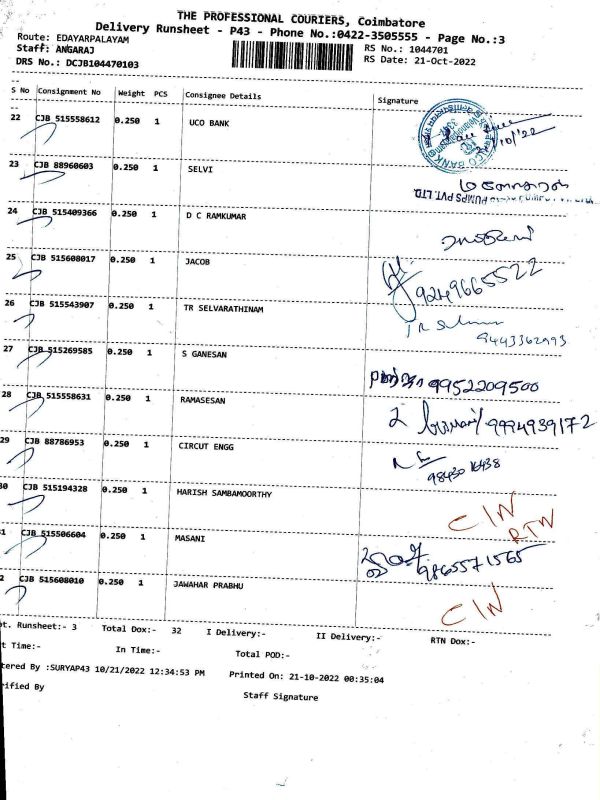 THE PROFESSIONAL COURIERS, Coimbatore
Delivery Runsheet - P43 - Phone No.:0422-3505555 - Page No.:3
Route: EDAYARPALAYAM
Staff: ANGARAJ
RS No.: 1044701
DRS No.: DCJB104470103
RS Date: 21-Oct-2022
S No Consignment No Weight PCS Consignee Details Signature
22 CJB 515558612 0.250 1 UCO BANK
23 CJB 88960603 0.250 1 SELVI
PUMPS PVT. LTD.
24 CJB 515409366 0.250 1 D C RAMKUMAR
25 CJB 515608017 0.250 1 JACOB
9249665522
26 CJB 515543907 0.250 1 TR SELVARATHINAM
9443362993
27 CJB 515269585 0.250 1 S GANESAN
9952209500
28 CJB 515558631 0.250 1 RAMASESAN
9994939172
29 CJB 88786953 0.250 1 CIRCUT ENGG
98430 16438
30 CJB 515194328 0.250 1 HARISH SAMBAMOORTHY
CIN
RTN
31 CJB 515506604 0.250 1 MASANI
9865571565
32 CJB 515608010 0.250 1 JAWAHAR PRABHU
CIN
t. Runsheet:- 3 Total Dox:- 32 I Delivery:- II Delivery:- RTN Dox:-
t Time:- In Time:- Total POD:-
tered By :SURYAP43 10/21/2022 12:34:53 PM Printed On: 21-10-2022 00:35:04
rified By Staff Signature